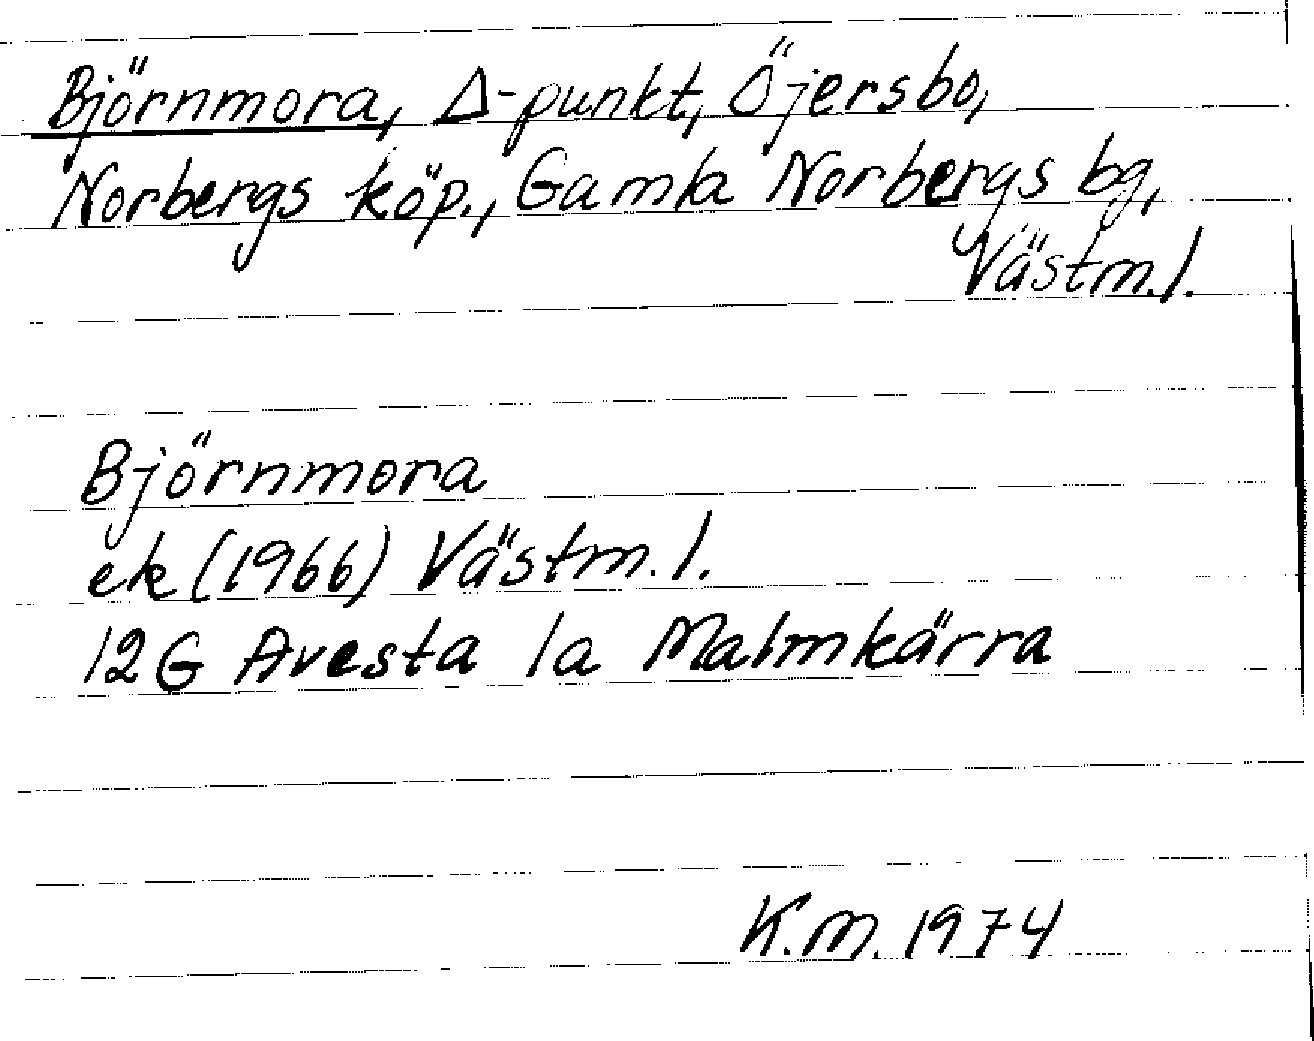 Björnmora, Δ-punkt, Öjersbo,
Norbergs köp., Gamla Norbergs bg,
Västm.l.
Björnmora
ek (1966) Västm.l.
12G Avesta 1a Malmkärra
K.M. 1974